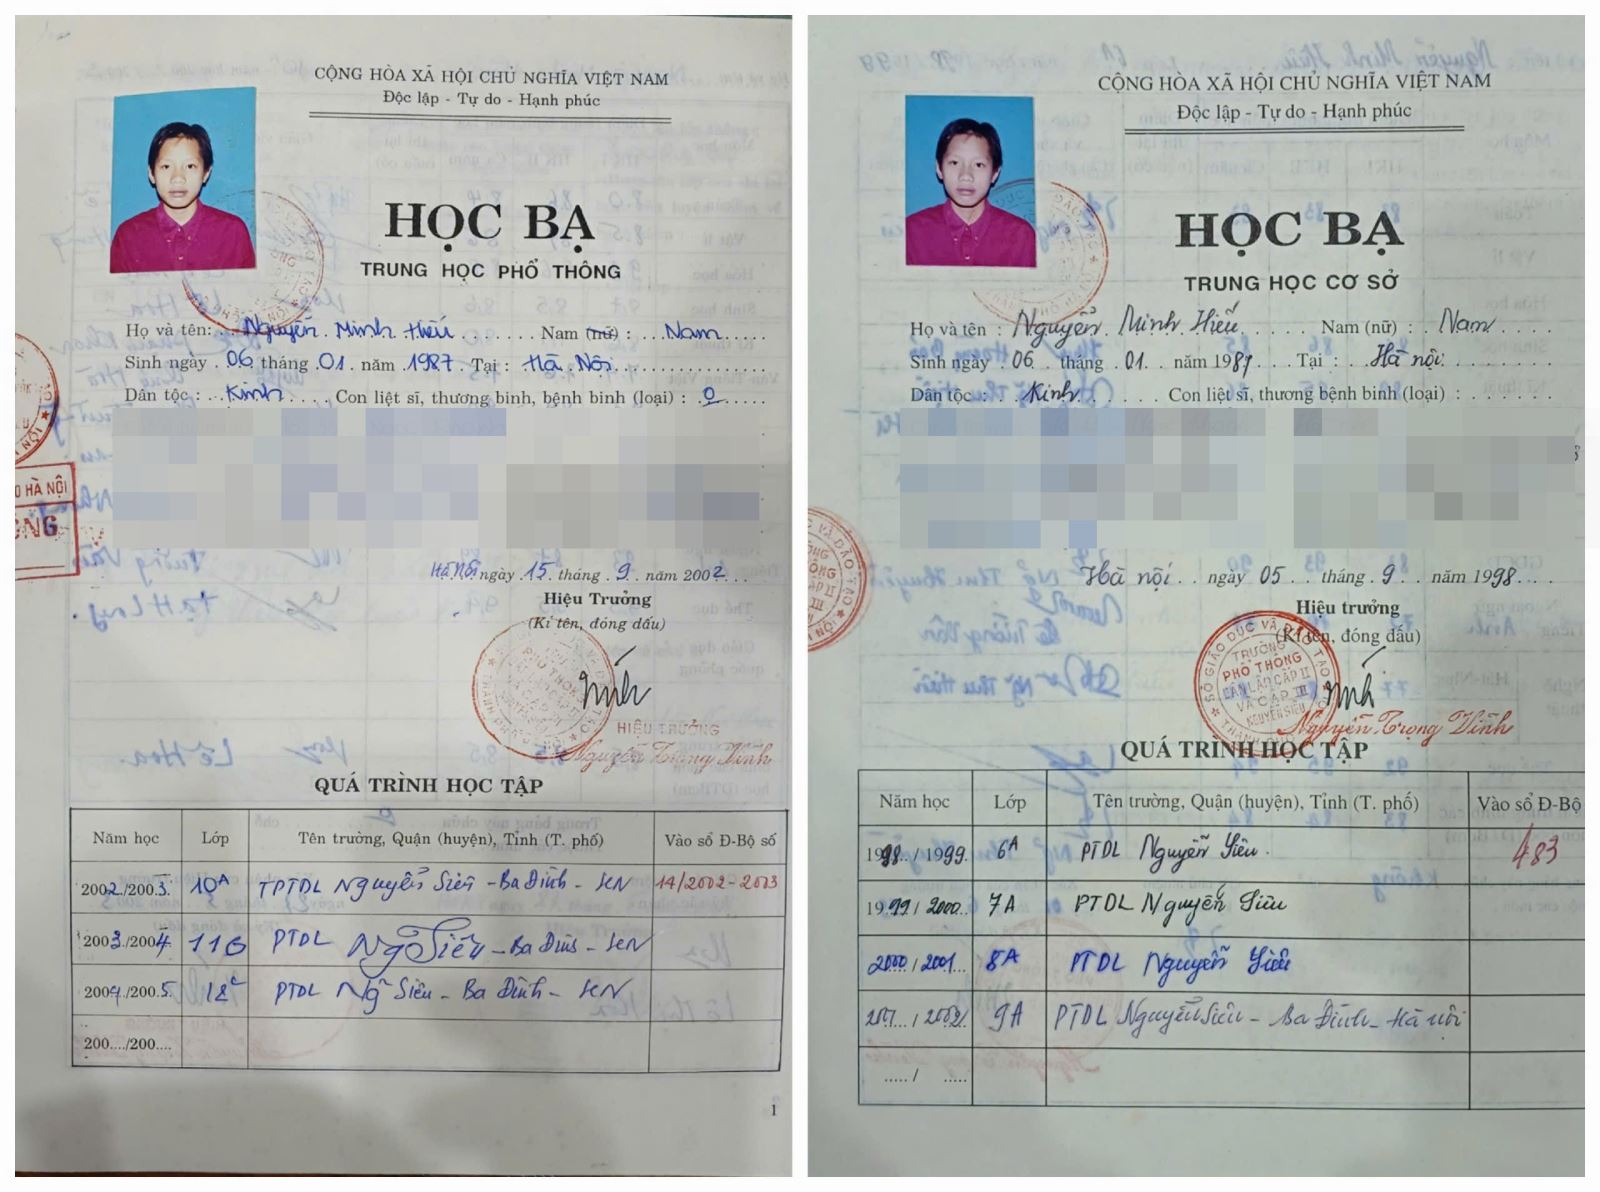 CỘNG HÒA XÃ HỘI CHỦ NGHĨA VIỆT NAM
Độc lập - Tự do - Hạnh phúc
HỌC BẠ
TRUNG HỌC PHỔ THÔNG
Họ và tên: Nguyễn Minh Hiếu Nam (nữ) : Nam
Sinh ngày 06 tháng 01 năm 1987 Tại : Hà Nội
Dân tộc : Kinh Con liệt sĩ, thương binh, bệnh binh (loại) : 0
Hà Nội ngày 15 tháng 9 năm 2002
Hiệu Trưởng
(Kí tên, đóng dấu)
HIỆU TRƯỞNG
Nguyễn Trọng Vĩnh
QUÁ TRÌNH HỌC TẬP
Năm học Lớp Tên trường, Quận (huyện), Tỉnh (T. phố) Vào sổ Đ-Bộ số
2002/2003 10A TPTDL Nguyễn Siêu - Ba Đình - HN 14/2002-2003
2003/2004 11G PTDL Ng Siêu - Ba Đình - HN
2004/2005 12C PTDL Ng Siêu - Ba Đình - HN
200..../200....
1
CỘNG HÒA XÃ HỘI CHỦ NGHĨA VIỆT NAM
Độc lập - Tự do - Hạnh phúc
HỌC BẠ
TRUNG HỌC CƠ SỞ
Họ và tên : Nguyễn Minh Hiếu Nam (nữ) : Nam
Sinh ngày 06 tháng 01 năm 1987 Tại : Hà nội
Dân tộc : Kinh Con liệt sĩ, thương bệnh binh (loại) :
Hà nội ngày 05 tháng 9 năm 1998
Hiệu trưởng
(Kí tên, đóng dấu)
SỞ GIÁO DỤC VÀ ĐÀO TẠO
TRƯỜNG
PHỔ THÔNG
DÂN LẬP CẤP II
VÀ CẤP III
NGUYỄN SIÊU
Nguyễn Trọng Vĩnh
QUÁ TRÌNH HỌC TẬP
Năm học Lớp Tên trường, Quận (huyện), Tỉnh (T. phố) Vào sổ Đ-Bộ
1998/1999 6A PTDL Nguyễn Siêu 483
1999/2000 7A PTDL Nguyễn Siêu
2000/2001 8A PTDL Nguyễn Siêu
2001/2002 9A PTDL Nguyễn Siêu - Ba Đình - Hà nội
...../ .....